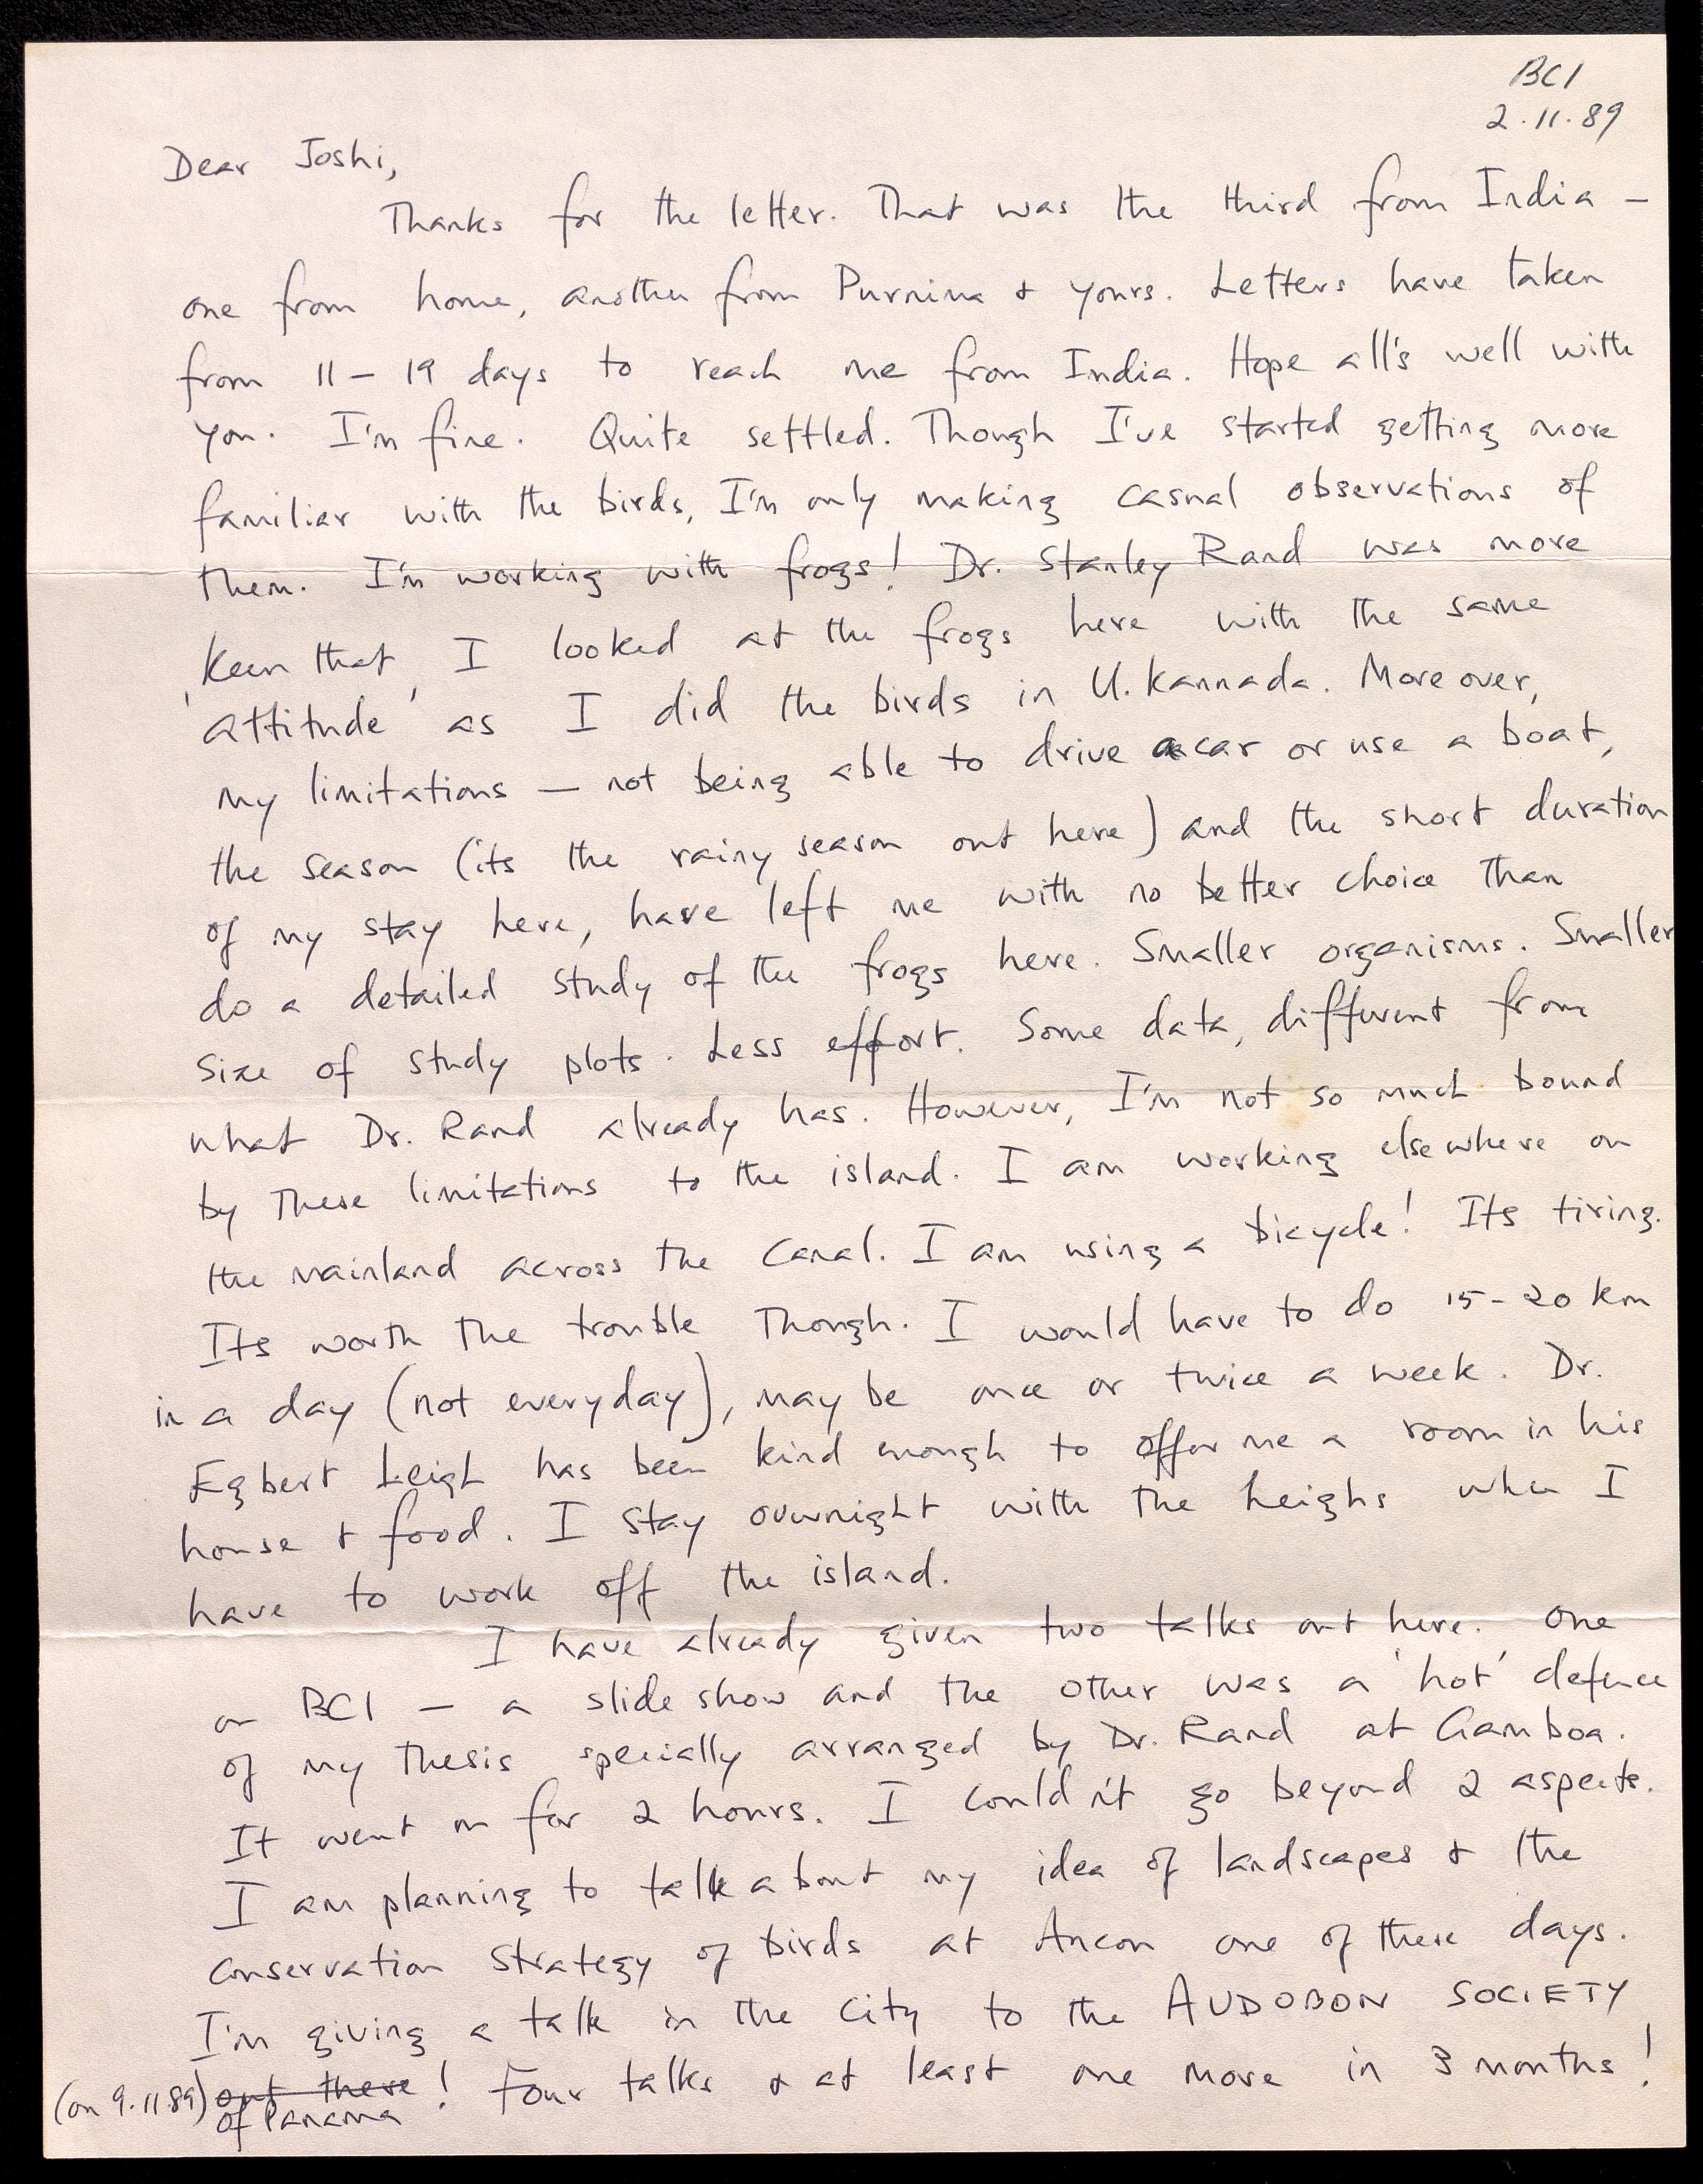 BCI
2.11.89
Dear Joshi,
Thanks for the letter. That was the third from India –
one from home, another from Purnima & yours. Letters have taken
from 11 – 19 days to reach me from India. Hope all's well with
you. I'm fine. Quite settled. Though I've started getting more
familiar with the birds, I'm only making casual observations of
them. I'm working with frogs! Dr. Stanley Rand was more
keen that I looked at the frogs here with the same
'attitude' as I did the birds in U. Kannada. Moreover,
my limitations — not being able to drive a car or use a boat,
the season (its the rainy season out here) and the short duration
of my stay here, have left me with no better choice than
do a detailed study of the frogs here. Smaller organisms. Smaller
size of study plots. Less effort. Some data, different from
what Dr. Rand already has. However, I'm not so much bound
by these limitations to the island. I am working elsewhere on
the mainland across the Canal. I am using a bicycle! Its tiring.
Its worth the trouble though. I would have to do 15-20 km
in a day (not everyday), may be once or twice a week. Dr.
Egbert Leigh has been kind enough to offer me a room in his
house & food. I stay overnight with the Leighs when I
have to work off the island.
I have already given two talks out here. One
on BCI – a slide show and the other was a 'hot' defence
of my thesis specially arranged by Dr. Rand at Gamboa.
It went on for 2 hours. I couldn't go beyond 2 aspects.
I am planning to talk about my idea of landscapes & the
conservation strategy of birds at Ancon one of these days.
I'm giving a talk in the city to the AUDOBON SOCIETY
(on 9.11.89) out there! Four talks & at least one more in 3 months!
of Panama